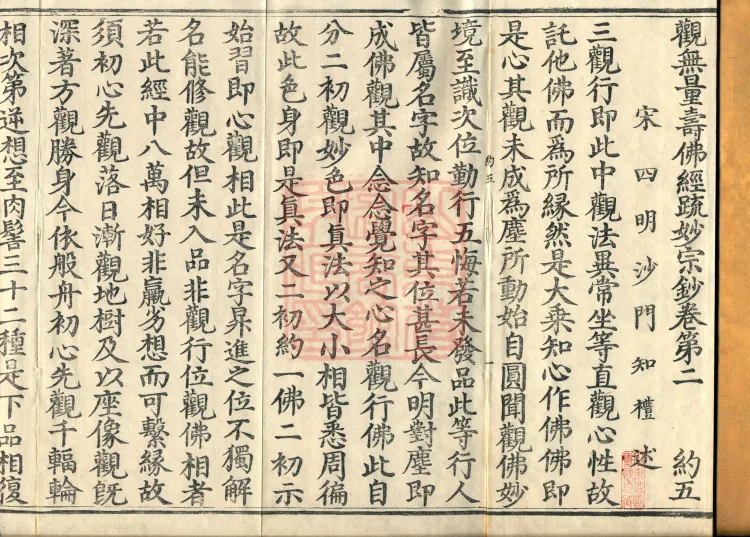 觀無量壽佛經疏妙宗鈔卷第二 約五
宋四明沙門知禮述
三觀行即此中觀法異常坐等直觀心性故
託他佛而爲所縁然是大乗知心作佛佛即
是心其觀未成爲塵所動始自圓聞觀佛妙
約五
境至識次位勤行五悔若未發品此等行人
皆屬名字故知名字其位甚長今明對塵即
成佛觀其中念念覺知之心名觀行佛此自
分二初觀妙色即眞法以大小相皆悉周徧
故此色身即是眞法又二初約一佛二初示
始習即心觀相此是名字昇進之位不獨解
名能修觀故但未入品非觀行位觀佛相者
若此經中八萬相好非羸劣想而可繫緣故
須初心先觀落日漸觀地樹及以座像觀旣
深著方觀勝身今依般舟初心先觀千輻輪
相次第逆想至肉髻三十二種是下品相復